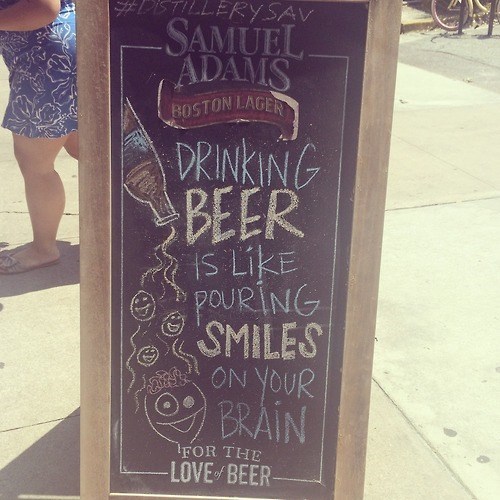 #DISTILLERYSAV
SAMUEL
ADAMS
BOSTON LAGER
DRINKING
BEER
IS LIKE
POURING
SMILES
ON YOUR
BRAIN
FOR THE
LOVE of BEER